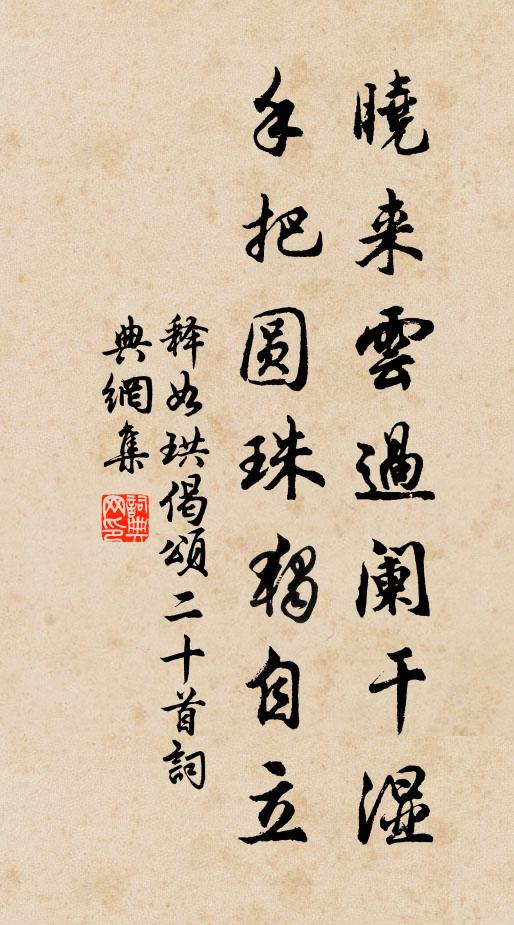 曉来雲過阑干濕
手把圆珠獨自立
释如珙偈頌二十首詞
典網集
詞典网印